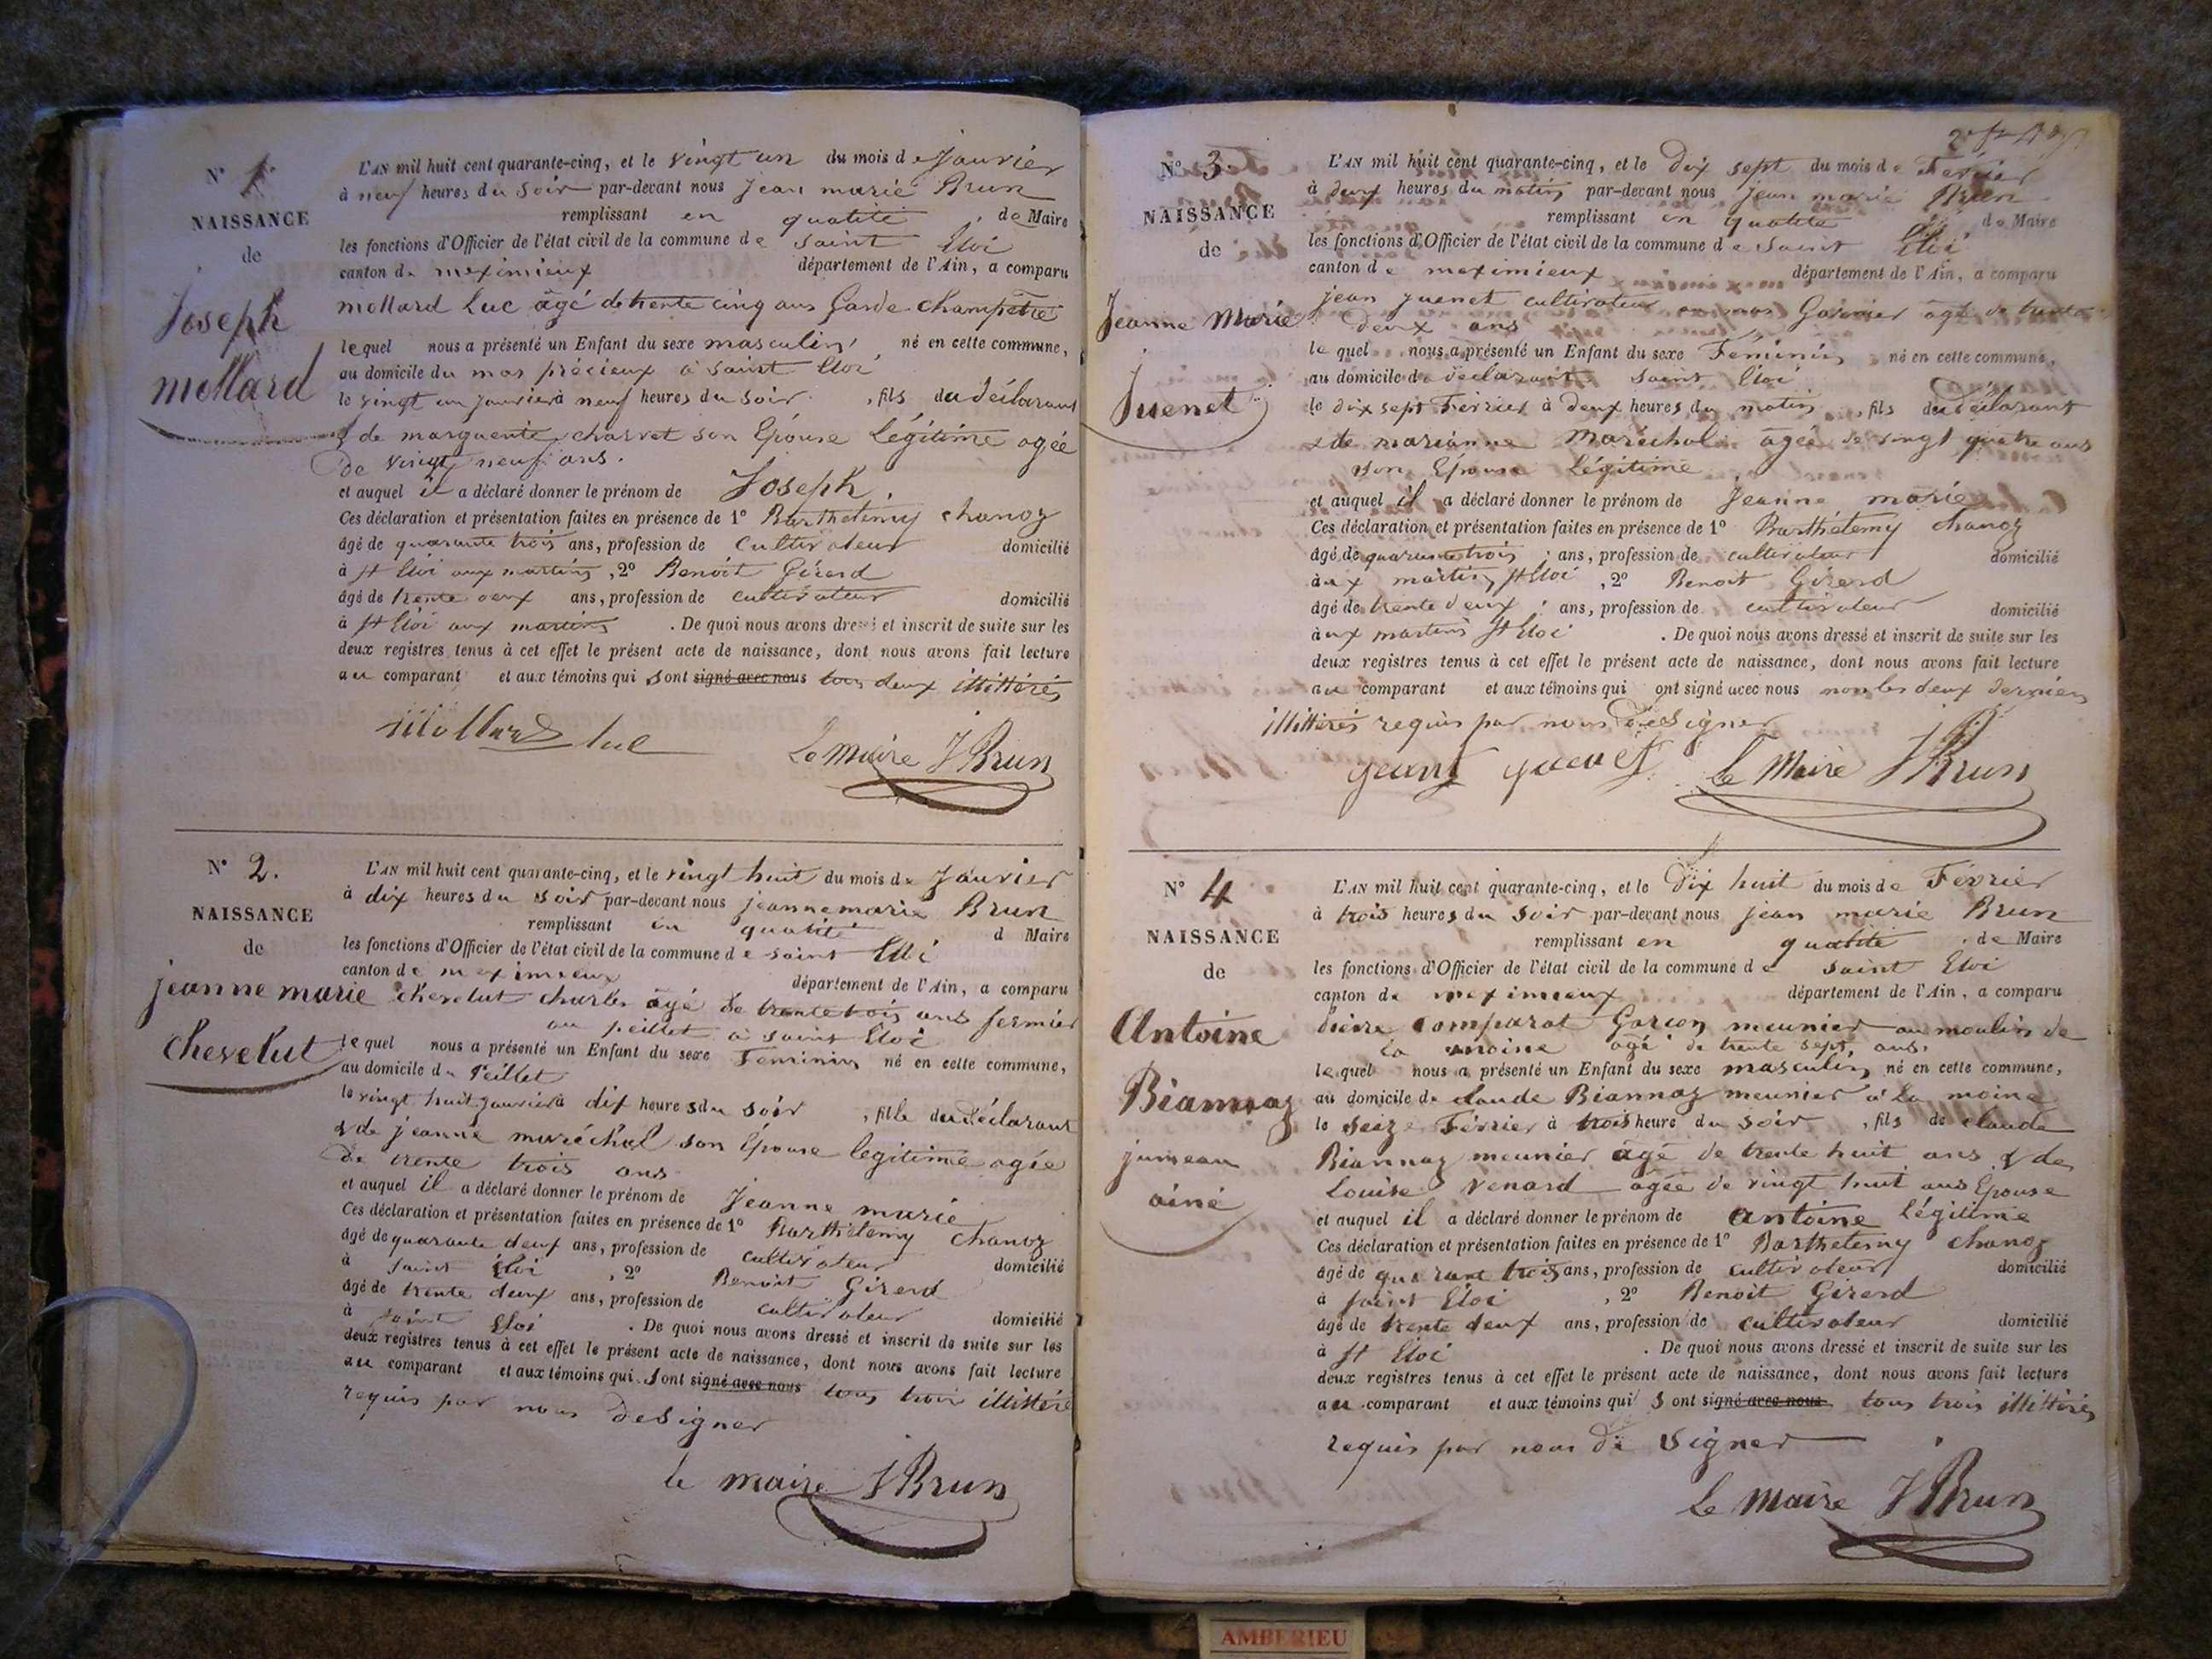 N° 1
NAISSANCE
de
Joseph
mollard
L'AN mil huit cent quarante-cinq, et le vingt un du mois de Janvier
à neuf heures du soir par-devant nous jean marie Brun
remplissant en qualité , de Maire
les fonctions d'Officier de l'état civil de la commune de saint Eloi
canton de meximieux département de l'Ain, a comparu
mollard Luc âgé de trente cinq ans Garde champêtre
lequel nous a présenté un Enfant du sexe masculin né en cette commune,
au domicile du mas précieux à saint Eloi
le vingt un janvier à neuf heures du soir , fils du déclarant
& de marguerite charvet son Epouse légitime agée
de vingt neuf ans.
et auquel il a déclaré donner le prénom de Joseph.
Ces déclaration et présentation faites en présence de 1° Barthelemy chanoz
âgé de quarante trois ans, profession de cultivateur domicilié
à st Eloi aux martins , 2° Benoit Girerd
âgé de trente deux ans, profession de cultivateur domicilié
à st Eloi aux martins . De quoi nous avons dressé et inscrit de suite sur les
deux registres tenus à cet effet le présent acte de naissance, dont nous avons fait lecture
au comparant et aux témoins qui sont signé avec nous tous deux illittérés
Mollard luc Le maire J Brun
N° 2.
NAISSANCE
de
jeanne marie
chevelut
L'AN mil huit cent quarante-cinq, et le vingt huit du mois de Janvier
à dix heures du soir par-devant nous jeanne marie Brun
remplissant en qualité d Maire
les fonctions d'Officier de l'état civil de la commune de saint Eloi
canton de meximieux département de l'Ain, a comparu
chevelut charles âgé de trente trois ans fermier
au peillet à saint Eloi
lequel nous a présenté un Enfant du sexe Feminin né en cette commune,
au domicile du Peillet
le vingt huit janvier à dix heures du soir , fille du déclarant
& de jeanne maréchal son Epouse legitime agée
de trente trois ans
et auquel il a déclaré donner le prénom de Jeanne marie
Ces déclaration et présentation faites en présence de 1° Barthelemy chanoz
âgé de quarante deux ans, profession de cultivateur domicilié
à saint Eloi , 2° Benoit Girerd
âgé de trente deux ans, profession de cultivateur domicilié
à saint Eloi . De quoi nous avons dressé et inscrit de suite sur les
deux registres tenus à cet effet le présent acte de naissance, dont nous avons fait lecture
au comparant et aux témoins qui sont signé avec nous tous trois illittéré
requis par nous de signer
le maire J Brun
N° 3.
NAISSANCE
de
Jeanne Marie
Juenet
L'AN mil huit cent quarante-cinq, et le dix sept du mois de Février
à deux heures du matin par-devant nous jean marie Brun
remplissant en qualité , de Maire
les fonctions d'Officier de l'état civil de la commune de saint Eloi
canton de meximieux département de l'Ain, a comparu
jean juenet cultivateur au mas Garnier âgé de trente
deux ans
lequel nous a présenté un Enfant du sexe Féminin né en cette commune,
au domicile de déclarant saint Eloi
le dix sept Février à deux heures du matin , fils du déclarant
& de marianne Maréchal âgée de vingt quatre ans
son Epouse légitime
et auquel il a déclaré donner le prénom de Jeanne marie
Ces déclaration et présentation faites en présence de 1° Barthélemy chanoz
âgé de quarante trois ans, profession de cultivateur domicilié
à ux martins st Eloi , 2° Benoit Girerd
âgé de trente deux ans, profession de cultivateur domicilié
à ux martins st Eloi . De quoi nous avons dressé et inscrit de suite sur les
deux registres tenus à cet effet le présent acte de naissance, dont nous avons fait lecture
au comparant et aux témoins qui ont signé avec nous non les deux derniers
illittérés requis par nous de signer
jeant juenet Le Maire J Brun
N° 4
NAISSANCE
de
Antoine
Biannaz
jumeau
ainé
L'AN mil huit cent quarante-cinq, et le Dix huit du mois de Février
à trois heures du soir par-devant nous jean marie Brun
remplissant en qualité , de Maire
les fonctions d'Officier de l'état civil de la commune de saint Eloi
canton de meximieux département de l'Ain, a comparu
Pierre comparat Garçon meunier au moulin de
la moine agé de trente sept ans.
lequel nous a présenté un Enfant du sexe masculin né en cette commune,
au domicile de claude Biannaz meunier à la moine
le seize Février à trois heure du soir , fils de claude
Biannaz meunier âgé de trente huit ans & de
Louise venard agée de vingt huit ans Epouse
et auquel il a déclaré donner le prénom de antoine légitime
Ces déclaration et présentation faites en présence de 1° Barthelemy chanoz
âgé de quarante trois ans, profession de cultivateur domicilié
à saint Eloi , 2° Benoit Girerd
âgé de trente deux ans, profession de cultivateur domicilié
à st Eloi . De quoi nous avons dressé et inscrit de suite sur les
deux registres tenus à cet effet le présent acte de naissance, dont nous avons fait lecture
au comparant et aux témoins qui sont signé avec nous tous trois illittérés
requis par nous de signer
Le Maire J Brun
AMBERIEU